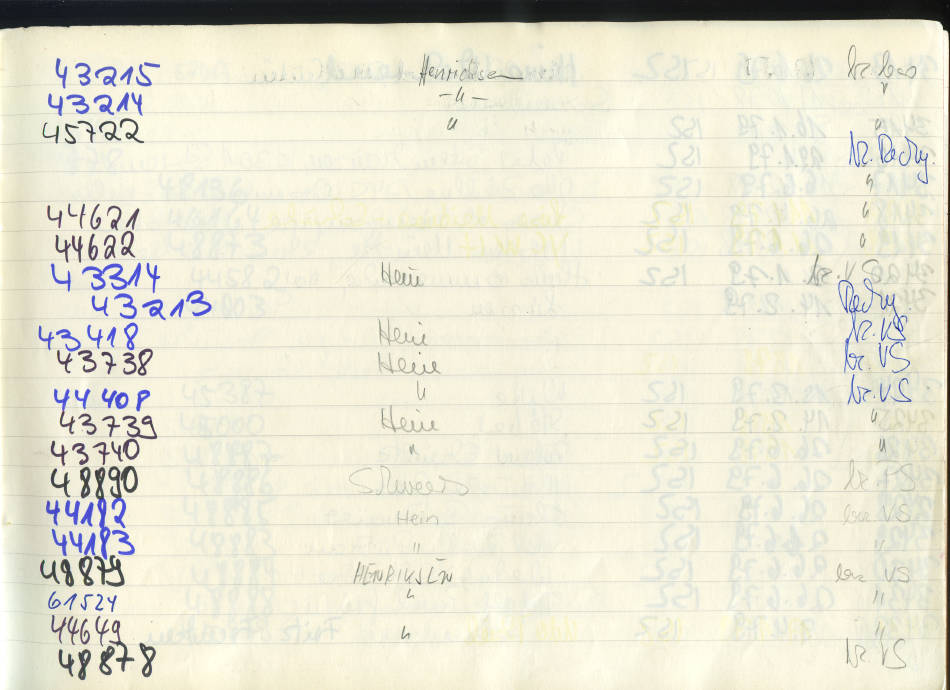 43215 Henrichsen
43214 -"-
45722 "
br. Pedry
"
44621 "
44622 "
43314 Hein br. VS
43213 Pedry
43418 Hein br. VS
43738 Heine br. VS
4440P " br. VS
43739 Heine "
43740 " "
48890
44182 Hein br VS
44183 " "
48879 HENRIKSEN br VS
61524 " "
44649 " "
48878 br. VS